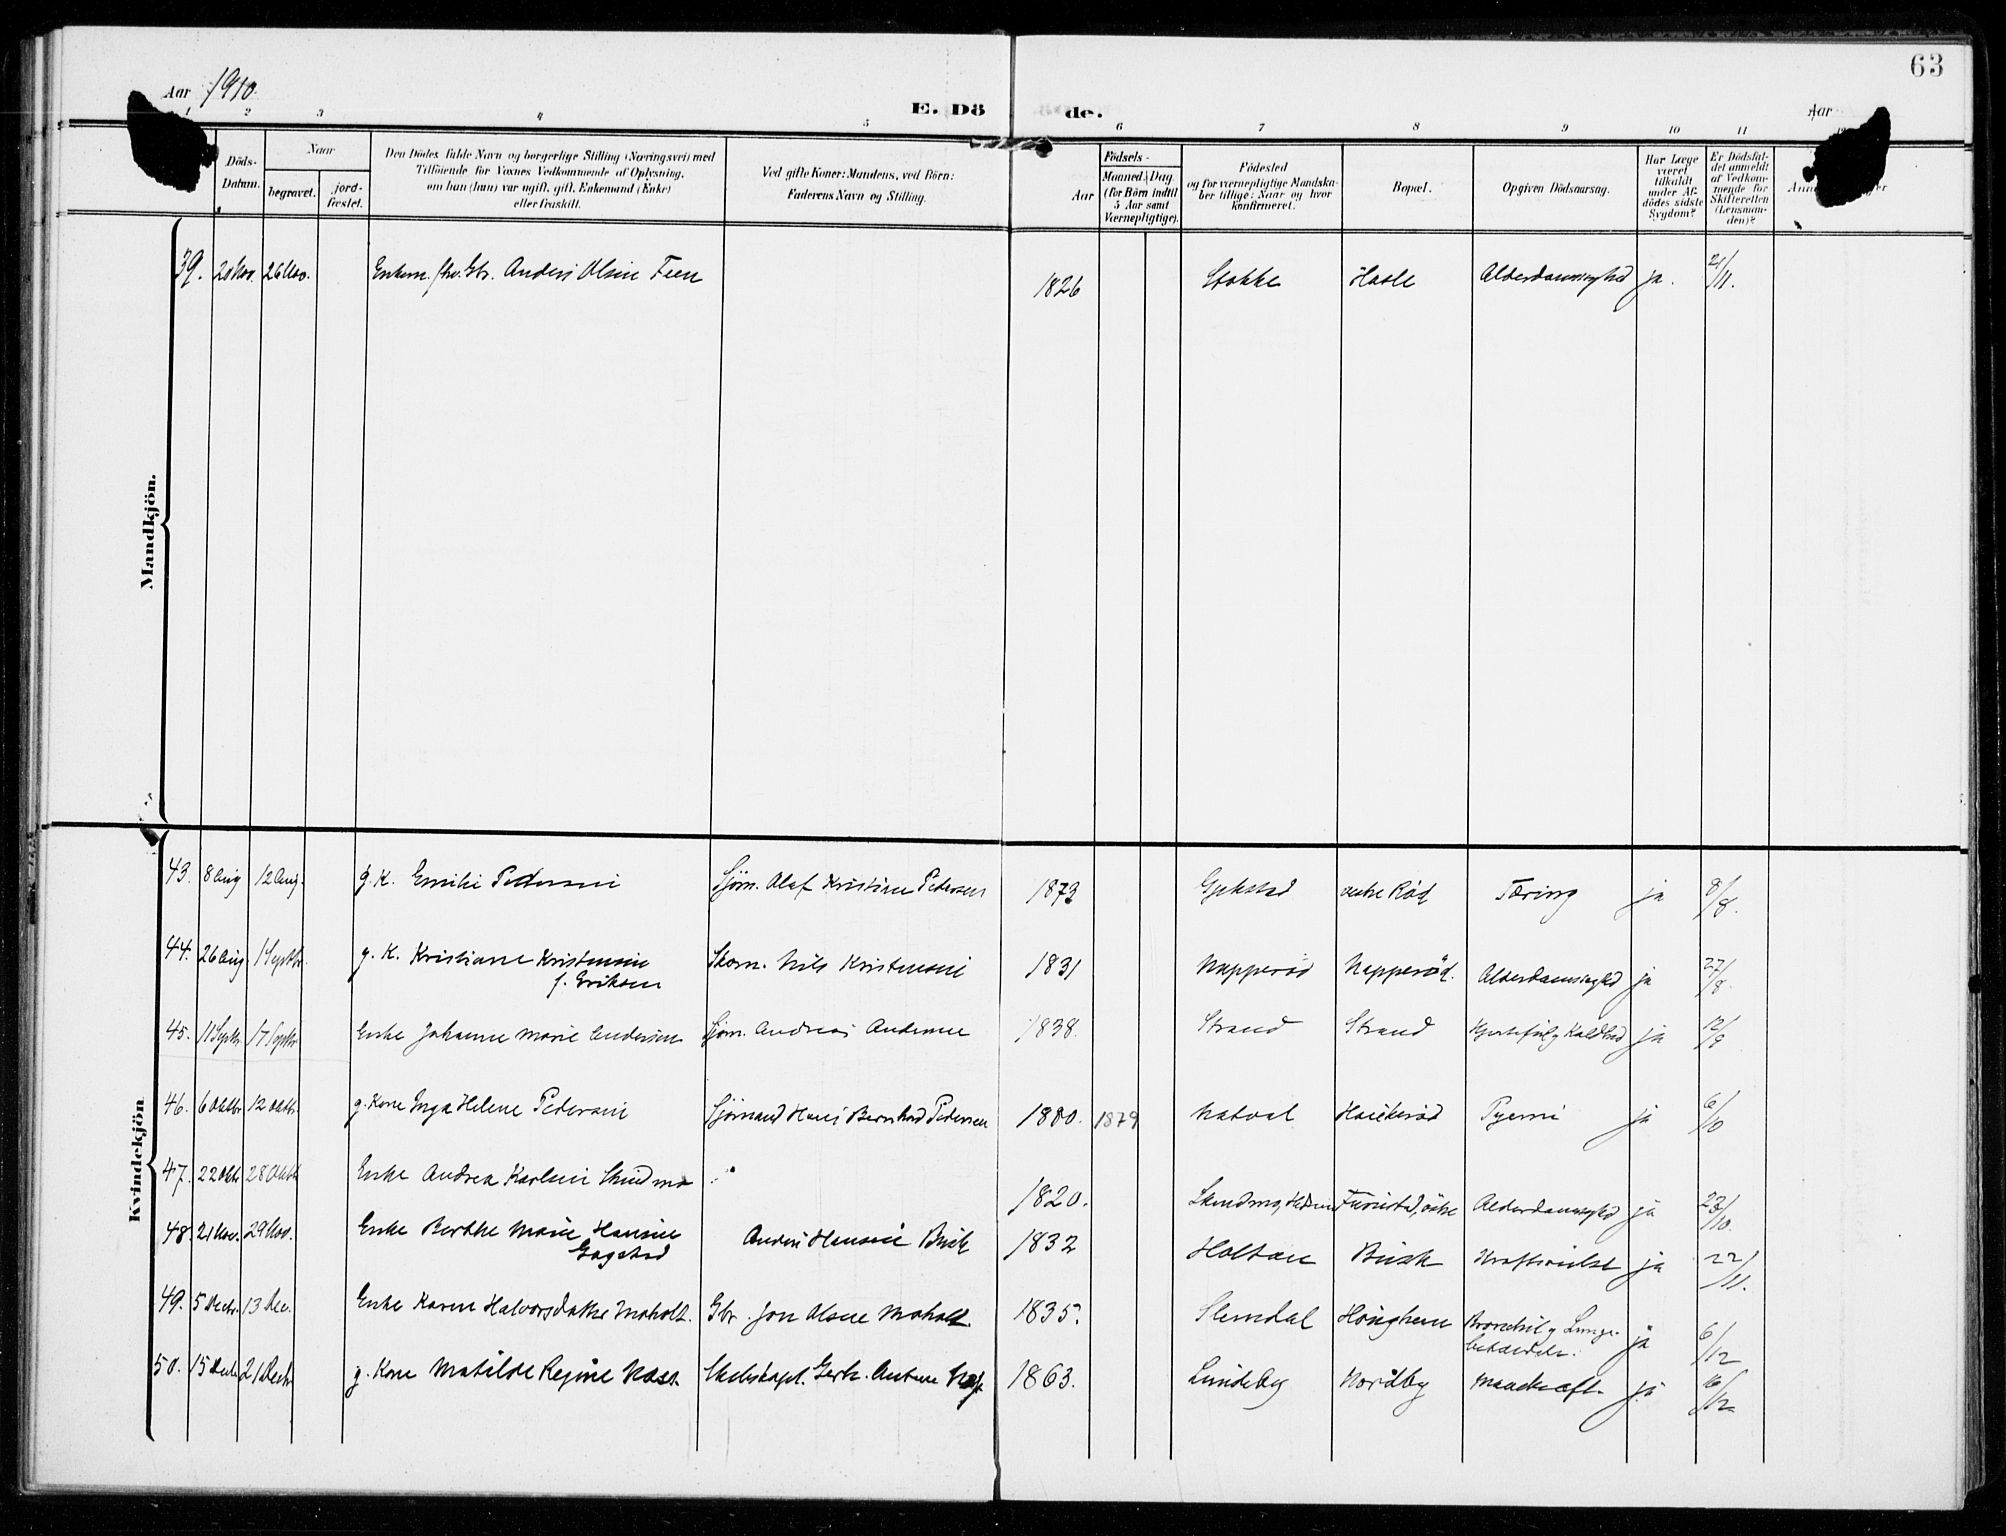 63
Aar 1910.
E. Dö de.
Aar
1 2 3 4 5 6 7 8 9 10 11
Döds-Datum.
Naar
begravet.
jord-fæstet.
Den Dödes fulde Navn og borgerlige Stilling (Næringsvei) med
Tilföiende for Voxnes Vedkommende af Oplysning,
om han (hun) var ugift, gift, Enkemand (Enke)
eller fraskilt.
Ved gifte Koner: Mandens, ved Börn:
Faderens Navn og Stilling.
Födsels-
Aar
Maaned. Dag.
(for Börn indtil
5 Aar samt
Værnepligtige).
Födested
og for værnepligtige Mandskaber tillige: Naar og hvor konfirmeret.
Bopæl.
Opgiven Dödsaarsag.
Har Læge
været
tilkaldt
under Afdödes sidste
Sygdom?
Er Dödsfaldet anmeldt
af Vedkommende for
Skifteretten
(Lensmanden)?
Mandkjön.
39. 20 Nov. 26 Nov. Enkem. Anders Olsen Feen 1826 Stokke Hasle Alderdomssvaghed ja. 21/11.
Kvindekjön
43. 8 Aug 12 Aug. g. K. Emilie Pedersen Sjöm. Olaf Kristian Pedersen 1873 Gjekstad Röd Tæring ja 8/8.
44. 26 Aug. 1 Septbr. g. K. Kristiane Kristensen Nils Kristensen 1831 Napperöd Napperöd. Alderdomssvaghed ja 27/8.
f. Eriksen
45. 11 Septbr. 17 Septbr. Enke Johanne Marie Andersen Sjöm. Andreas Andersen 1838. Strand Strand ja 12/9
46. 6 Oktbr. 12 Oktbr. g. Kone Inga Helene Pedersen Sjömand Hans Bernhard Pedersen 1880. 1879 Natval Haukeröd Pyemi ja 6/10
47. 22 Oktbr. 28 Oktbr. Enke Andrea Karlsen 1820. Alderdomssvaghed ja 23/10.
48. 21 Nov. 29 Nov. Enke Berthe Marie Hansen Anders Hansen Busk 1832 Holtan Busk ja 22/11.
Gogstad
49. 5 Decbr. 13 Dec. Enke Karen Halvorsdatter Moholt. Gbr. Jon Olsen Moholt. 1835. Slemdal Haughem Bronchit og Lunge- ja 6/12
betændelse.
50. 15 Decbr. 21 Decbr. g. Kone Matilde Regine Næss. Anton Næss 1863. Lundeby Nordby Mavekræft. ja 16/12